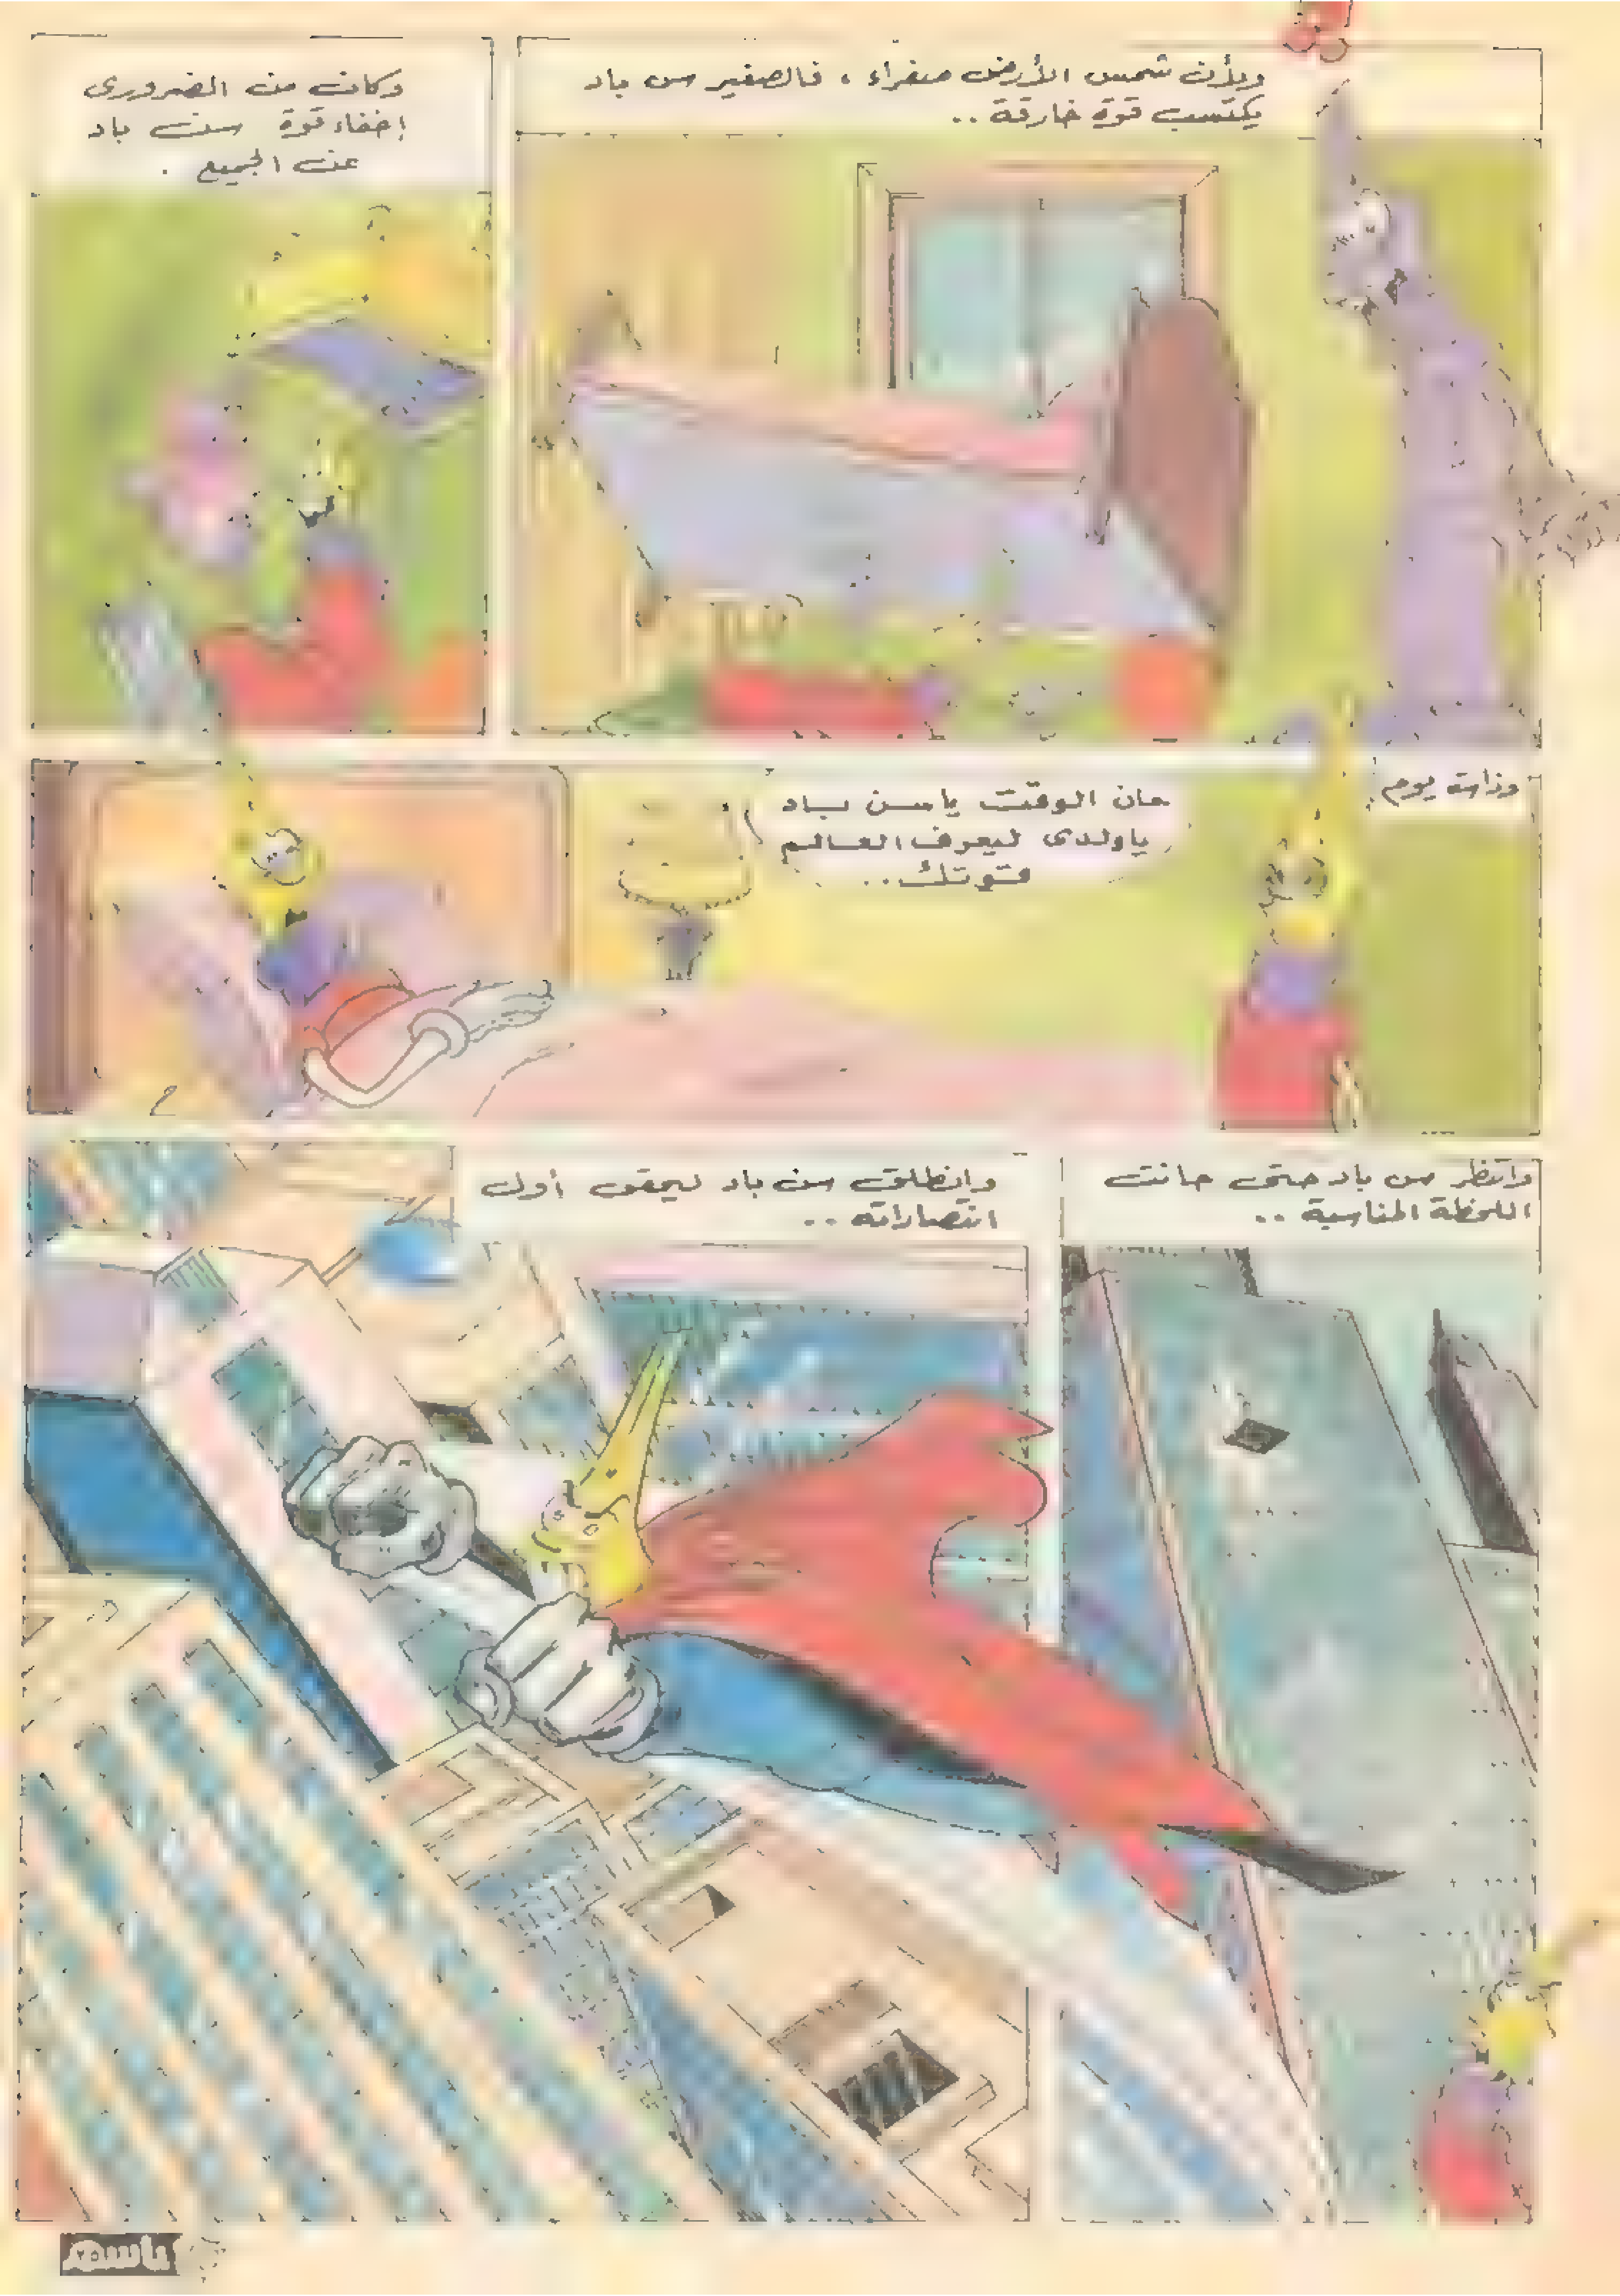 ولأن شمس الأرض صفراء ، فالصغير سن باد
يكتسب قوة خارقة ..
وكان من الضروري
إخفاء قوة سن باد
عن الجميع .
وذات يوم
حان الوقت ياسن باد
ياولدى ليعرف العالم
قوتك ..
وانتظر سن باد حتى حانت
اللحظة المناسبة ..
وانطلق سن باد ليحقق أول
انتصاراته ..
باسم